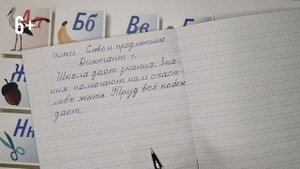 6+
Бб
Вв
1 класс Слово и предложение
Диктант ч.
Школа даёт знания. Зна-
ния помогают нам счаст-
ливо жить. Труд всё побеж-
дает.
Нн